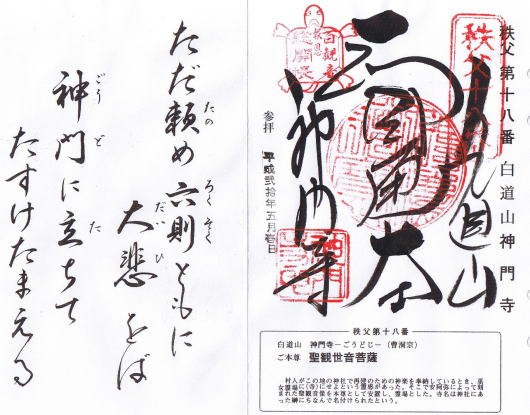 秩父 第十八番 白道山神門寺
白道山
神門寺
百観音
総開帳
参拝 平成弐拾年五月壱日
秩父第十八番
白道山 神門寺−ごうどじ−(曹洞宗)
ご本尊 聖観世音菩薩
村人がこの地の神社で再建のための神楽を奉納しているとき、巫
女霊場に(寺)にせよという霊感があった。そこで安阿弥によって刻
まれた聖観音像を本尊として安置し、霊場とした。寺名は神社にあ
った榊にちなんで名付けられたという。
ただ頼め六則ともに
たの ろくそく
大悲をば
だいひ
神門に立ちて
ごうど た
たすけたまえる